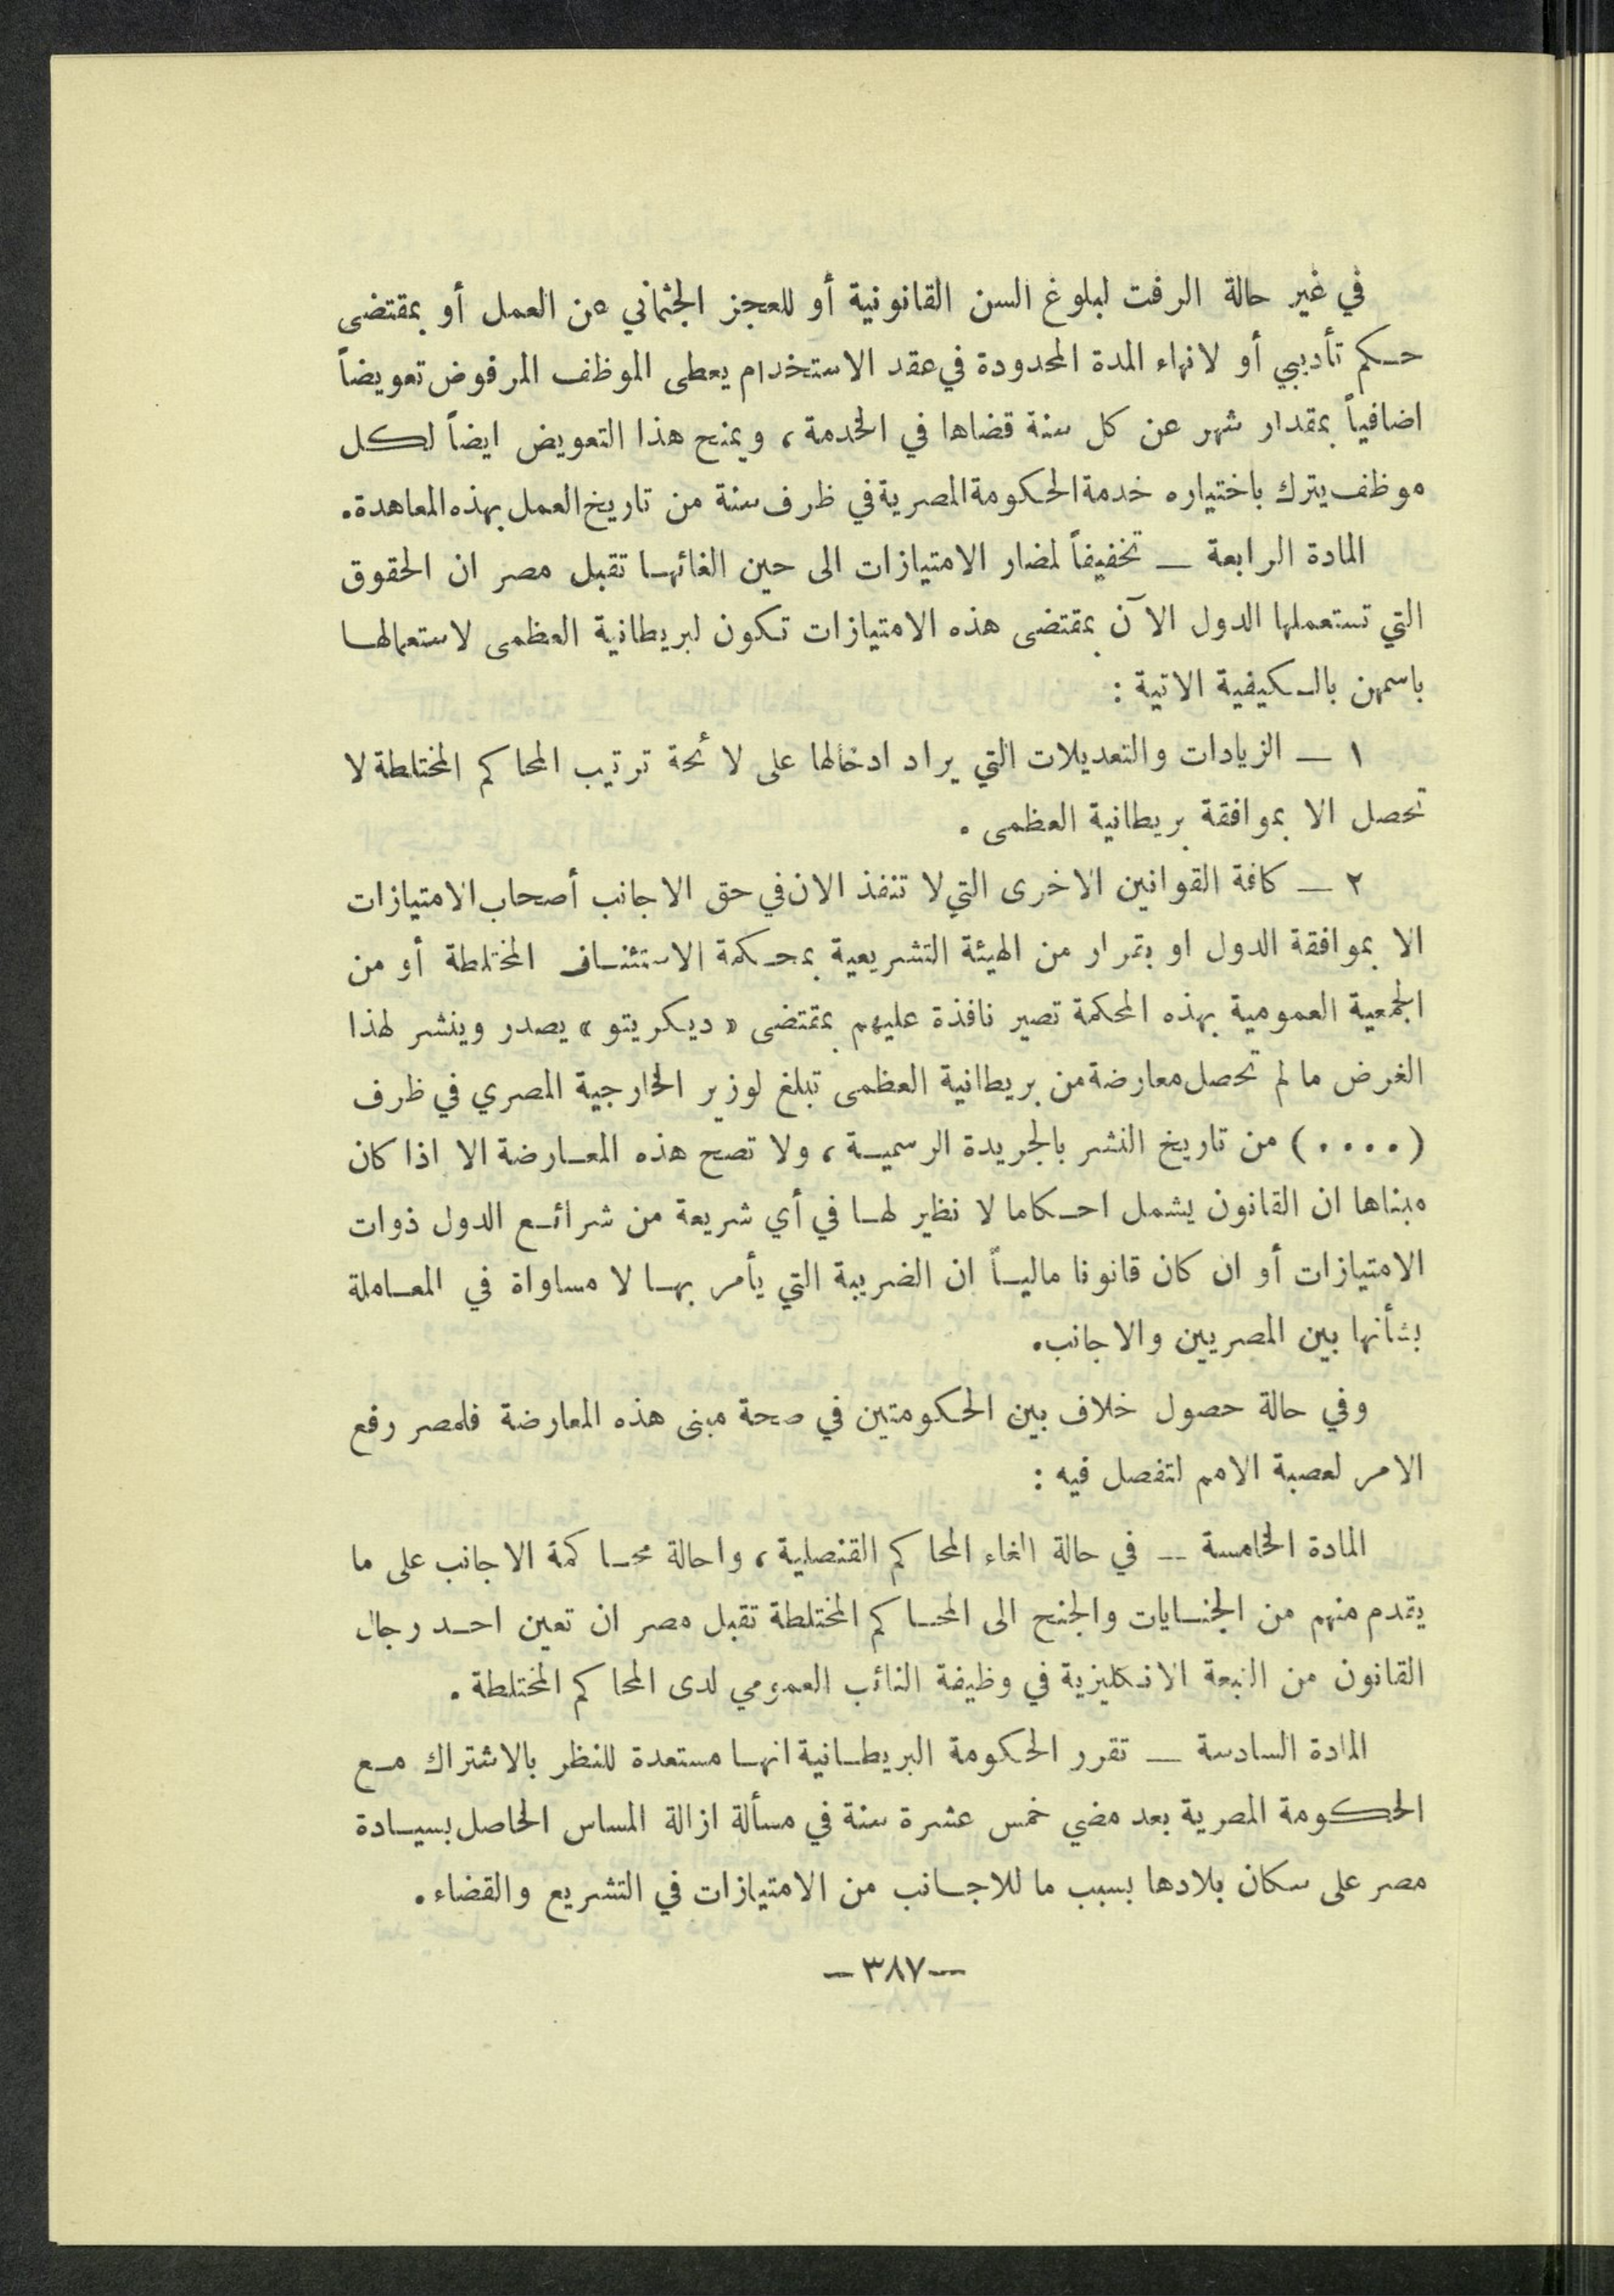 في غير حالة الرفت لبلوغ السن القانونية أو للعجز الجثماني عن العمل أو بمقتضى
حكم تأديبي أو لانهاء المدة المحدودة في عقد الاستخدام يعطى الموظف المرفوض تعويضاً
اضافياً بمقدار شهر عن كل سنة قضاها في الخدمة ، ويمنح هذا التعويض ايضاً لكل
موظف يترك باختياره خدمة الحكومة المصرية في ظرف سنة من تاريخ العمل بهذه المعاهدة.
المادة الرابعة — تخفيفاً لمضار الامتيازات الى حين الغائها تقبل مصر ان الحقوق
التي تستعملها الدول الآن بمقتضى هذه الامتيازات تكون لبريطانية العظمى لاستعمالها
باسمهن بالكيفية الاتية :
١ — الزيادات والتعديلات التي يراد ادخالها على لائحة ترتيب المحاكم المختلطة لا
تحصل الا بموافقة بريطانية العظمى .
٢ — كافة القوانين الاخرى التي لا تنفذ الان في حق الاجانب أصحاب الامتيازات
الا بموافقة الدول او بقرار من الهيئة التشريعية بمحكمة الاستئناف المختلطة أو من
الجمعية العمومية بهذه المحكمة تصير نافذة عليهم بمقتضى « ديكريتو » يصدر وينشر لهذا
الغرض ما لم تحصل معارضة من بريطانية العظمى تبلغ لوزير الخارجية المصري في ظرف
( .... ) من تاريخ النشر بالجريدة الرسمية ، ولا تصح هذه المعارضة الا اذا كان
مبناها ان القانون يشمل احكاما لا نظير لها في أي شريعة من شرائع الدول ذوات
الامتيازات أو ان كان قانونا مالياً ان الضريبة التي يأمر بها لا مساواة في المعاملة
بشأنها بين المصريين والاجانب.
وفي حالة حصول خلاف بين الحكومتين في صحة مبنى هذه المعارضة فلمصر رفع
الامر لعصبة الامم لتفصل فيه :
المادة الخامسة — في حالة الغاء المحاكم القنصلية ، واحالة محاكمة الاجانب على ما
يقدم منهم من الجنايات والجنح الى المحاكم المختلطة تقبل مصر ان تعين احد رجال
القانون من التبعة الانكليزية في وظيفة النائب العمومي لدى المحاكم المختلطة .
المادة السادسة — تقرر الحكومة البريطانية انها مستعدة للنظر بالاشتراك مع
الحكومة المصرية بعد مضي خمس عشرة سنة في مسألة ازالة المساس الحاصل بسيادة
مصر على سكان بلادها بسبب ما للاجانب من الامتيازات في التشريع والقضاء .
—٣٨٧—